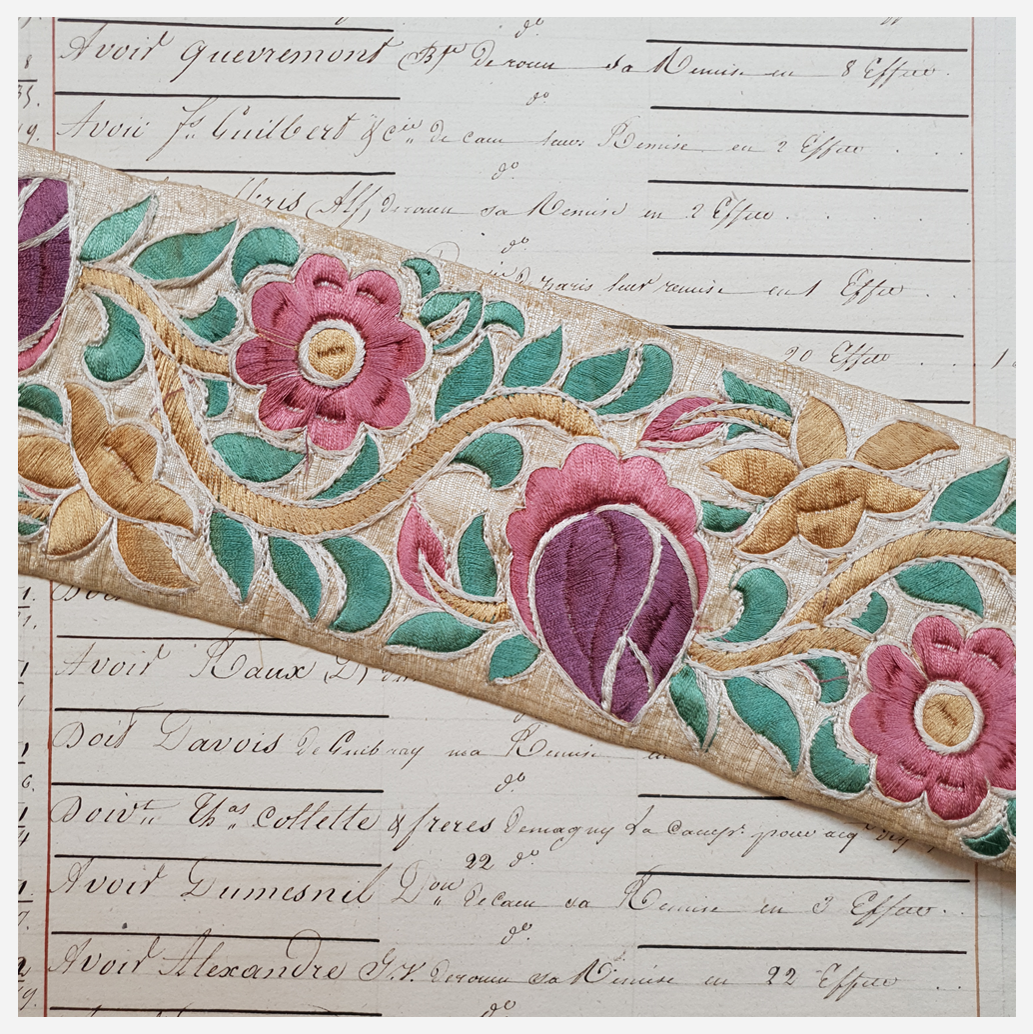 do
Avoir Quevremont Bte de rouen sa Remise en 8 Effets.
8
35.
do
Avoir Js Guilbert & Cie de caen leur Remise en 2 Effets . . .
19.
do
bris (Alf, de rouen sa Remise en 2 Effets . . . .
do
paris leur remise en 1 Effet . . .
20 Effets . . . . 1
1.
Avoir Raux
Doit Davois de Guibray ma Remise
do
6.
Doivt Thas Collette & freres
22 do
Avoir Dumesnil Don de caen sa Remise en 3 Effets . .
7.
do
Avoir Alexandre J.V. de rouen sa Remise en 22 Effets . .
9.
do